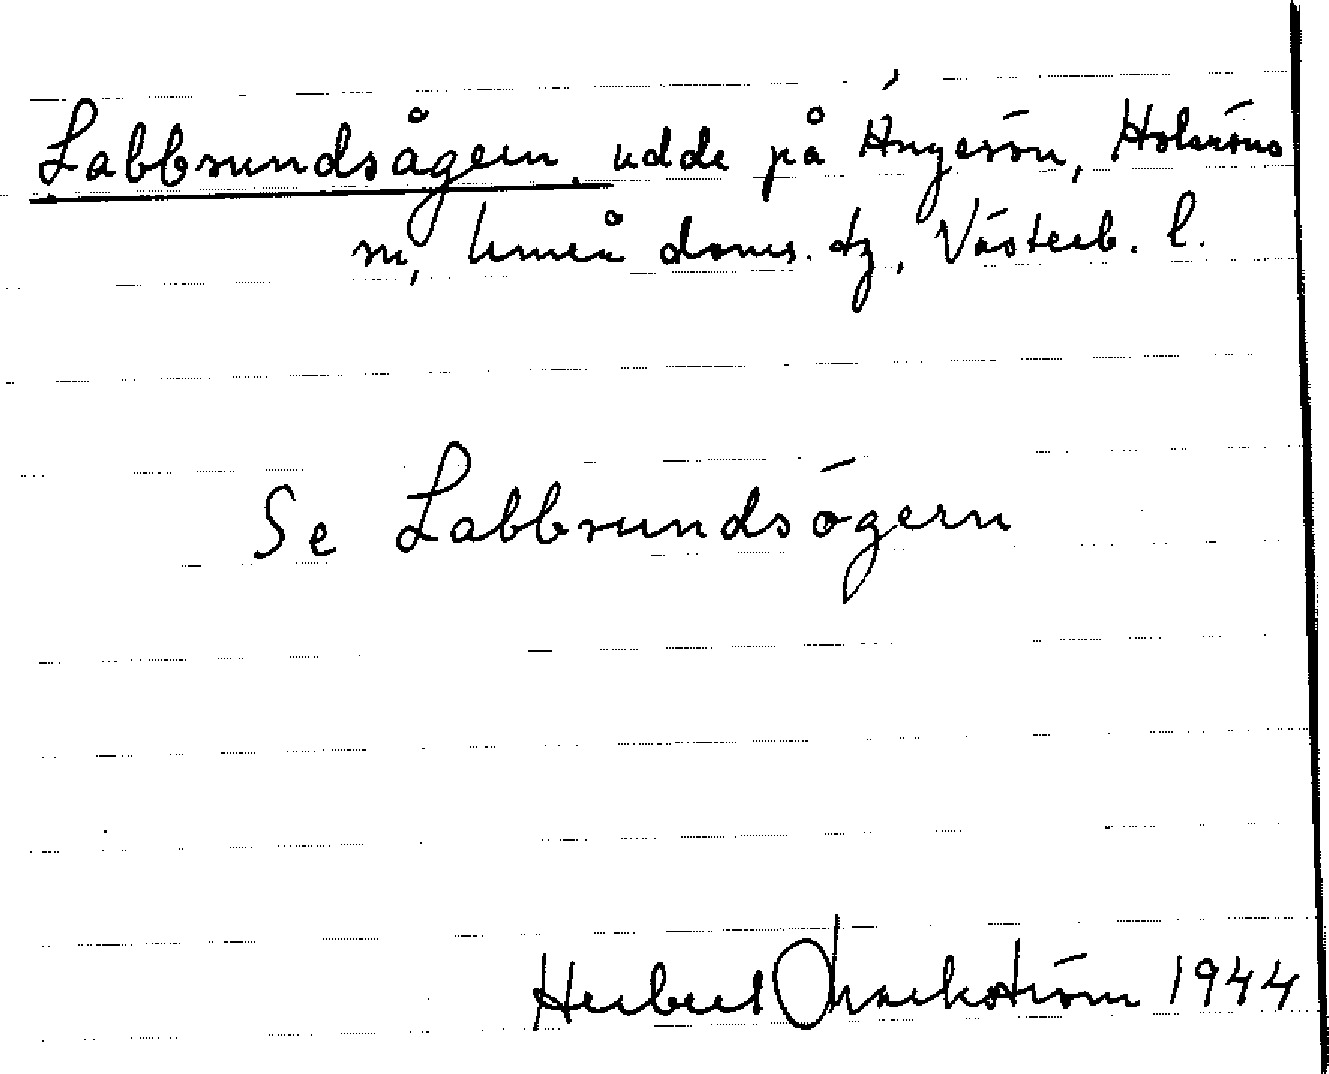 Labbsundsågern, udde på Ängesön, Holmöns
sn, Umeå doms. tg, Västerb. l.
Se Labbsundsögern
Herbert Markström 1944